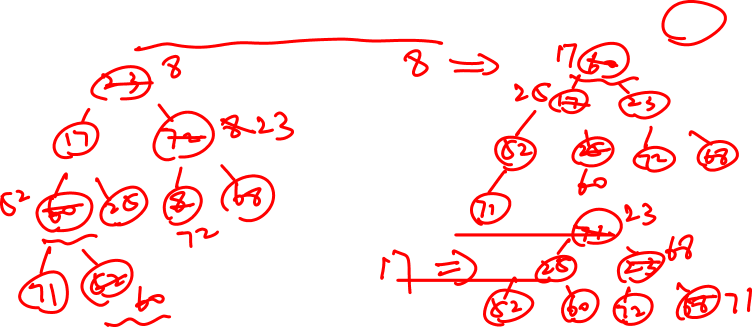 23 8
17 72 8 23
52 60 25 8 68
72
71 52 60
8 ⇒
17 60
25 17 23
52 25 72 68
60
71
71 23
17 ⇒ 25 23 68
52 60 72 68 71